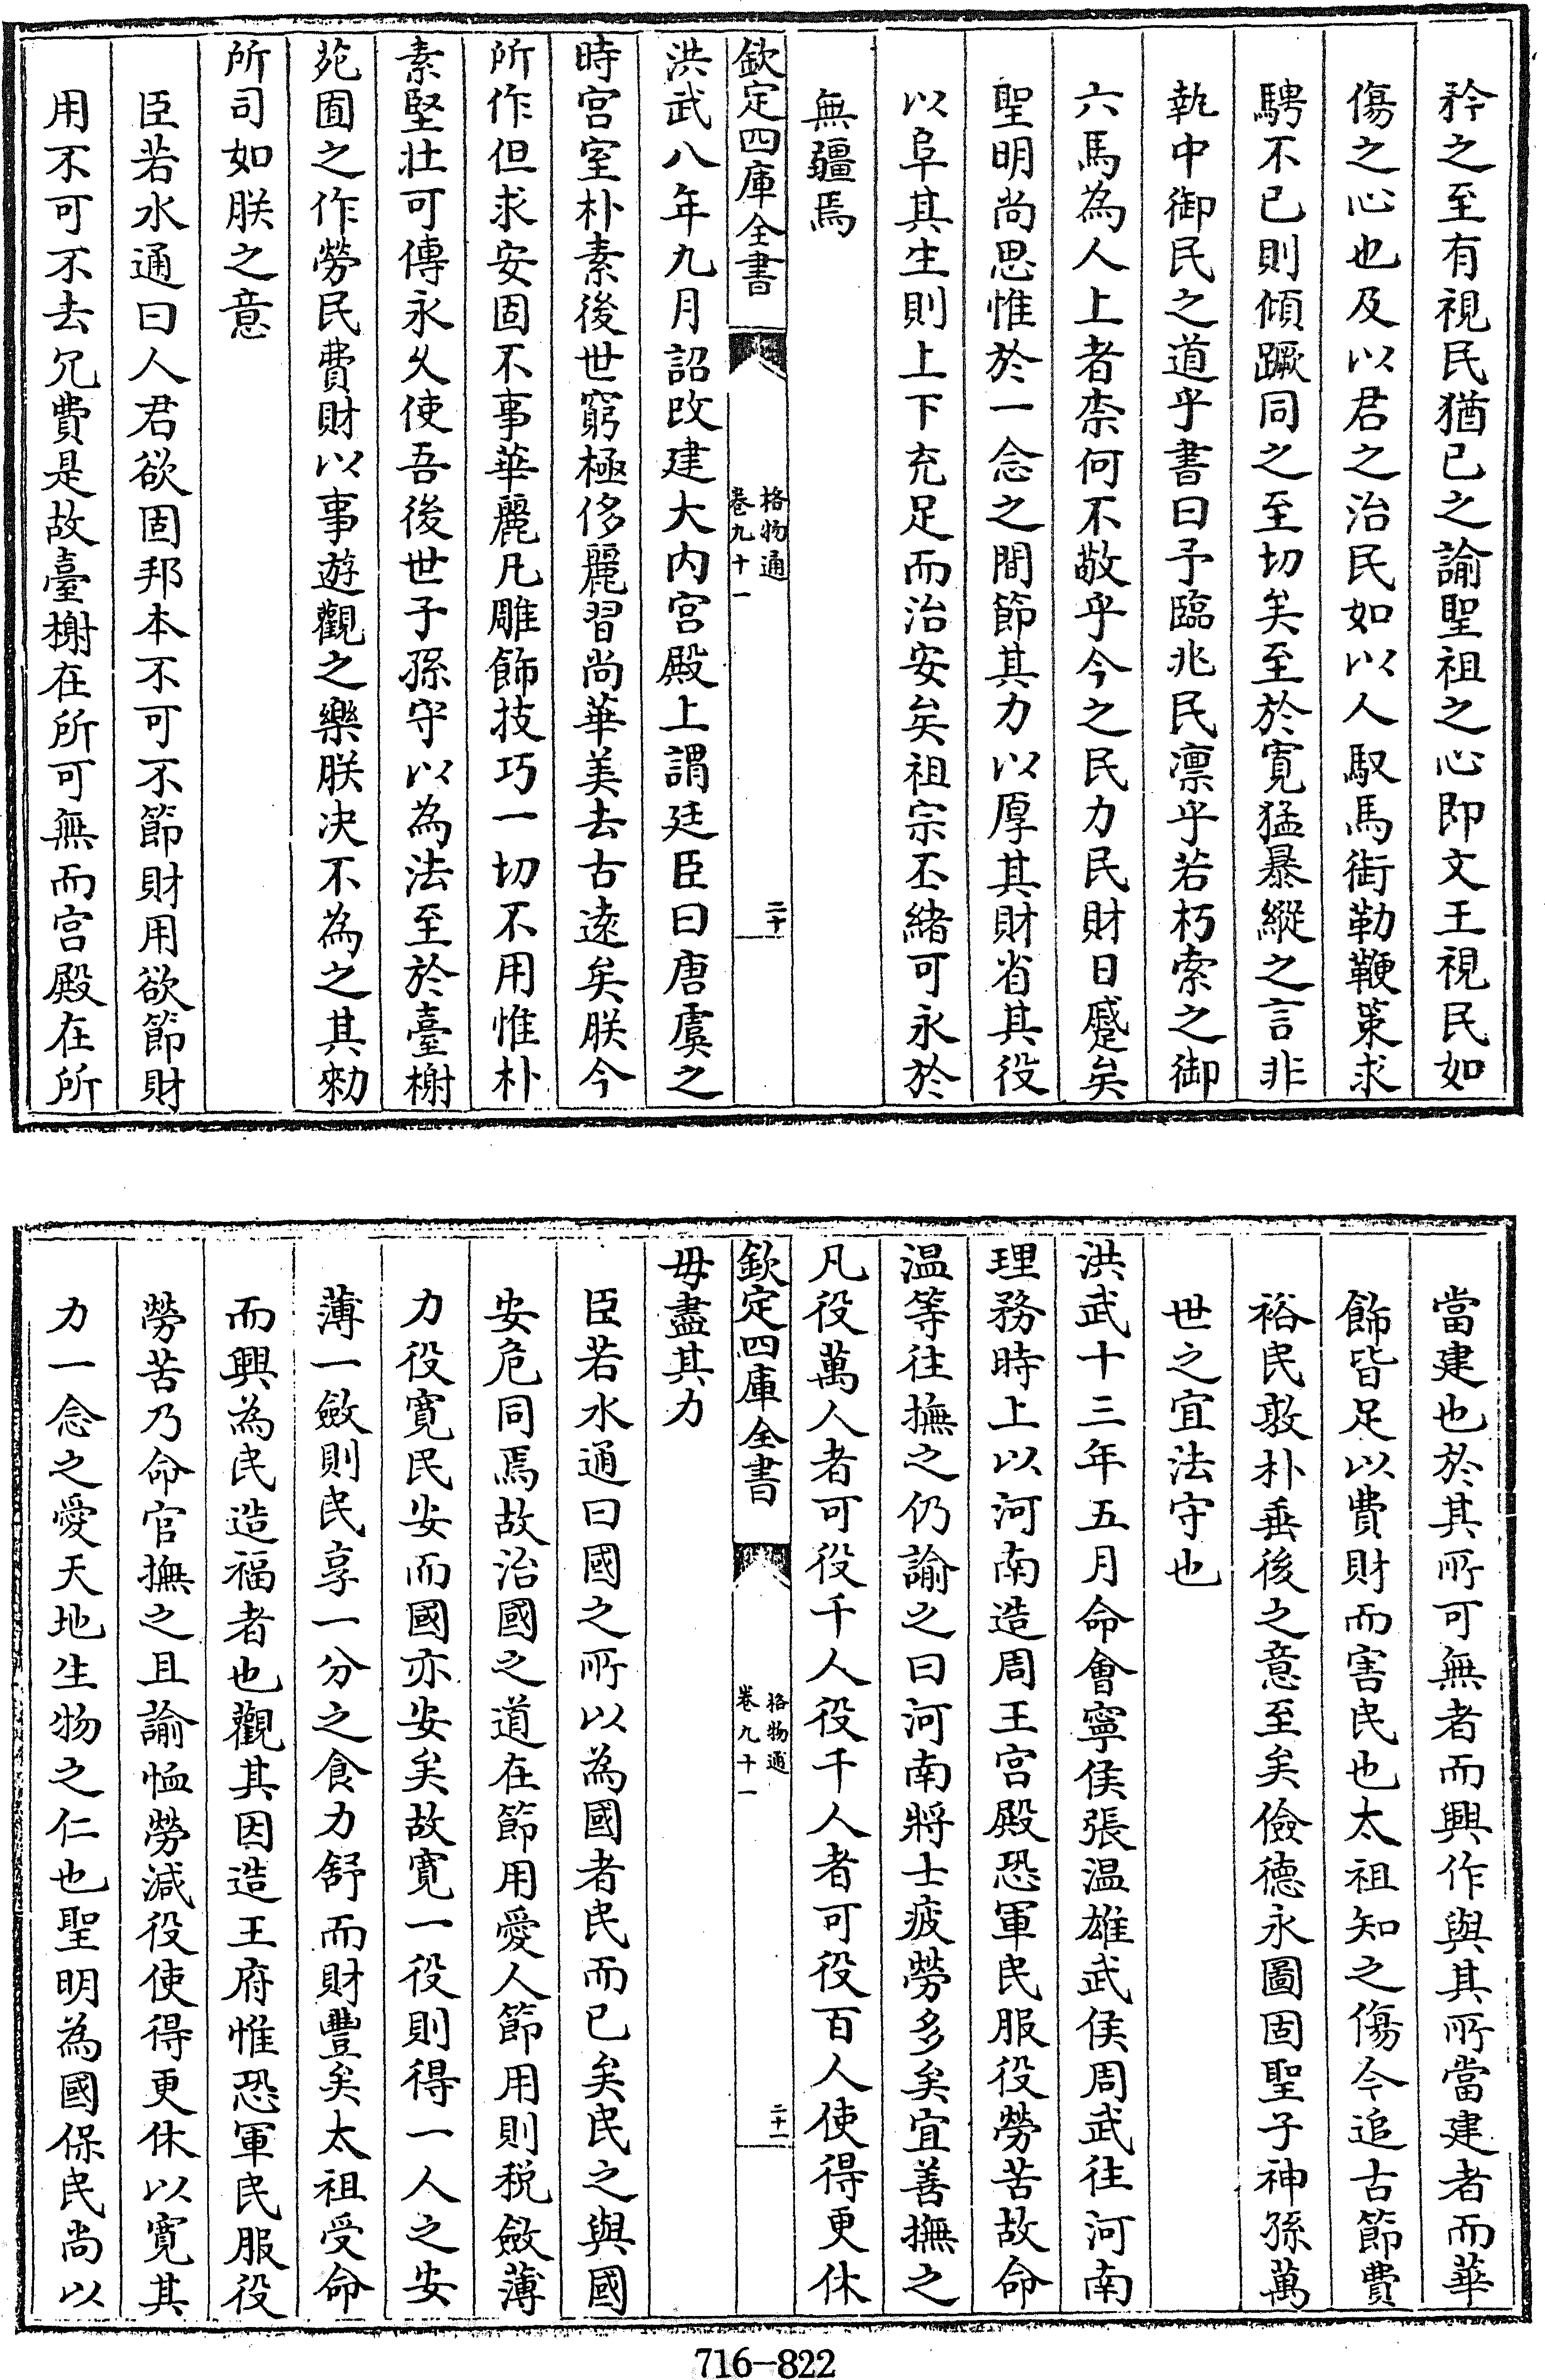 矜之至有視民猶已之諭聖祖之心即文王視民如
傷之心也及以君之治民如以人馭馬銜勒鞭策求
騁不已則傾蹶同之至切矣至於寛猛暴縱之言非
執中御民之道乎書曰予臨兆民凛乎若朽索之御
六馬為人上者柰何不敬乎今之民力民財日蹙矣
聖明尚思惟於一念之間節其力以厚其財省其役
以阜其生則上下充足而治安矣祖宗丕緒可永於
無疆焉
欽定四庫全書
格物通
卷九十一
二十
洪武八年九月詔改建大内宫殿上謂廷臣曰唐虞之
時宫室朴素後世窮極侈麗習尚華美去古遠矣朕今
所作但求安固不事華麗凡雕飾技巧一切不用惟朴
素堅壯可傳永久使吾後世子孫守以為法至於臺榭
苑囿之作勞民費財以事遊觀之樂朕决不為之其勑
所司如朕之意
臣若水通曰人君欲固邦本不可不節財用欲節財
用不可不去冗費是故臺榭在所可無而宫殿在所
當建也於其所可無者而興作與其所當建者而華
飾皆足以費財而害民也太祖知之傷今追古節費
裕民敦朴垂後之意至矣儉德永圖固聖子神孫萬
世之宜法守也
洪武十三年五月命會寧侯張温雄武侯周武往河南
理務時上以河南造周王宫殿恐軍民服役勞苦故命
温等往撫之仍諭之曰河南將士疲勞多矣宜善撫之
凡役萬人者可役千人役千人者可役百人使得更休
欽定四庫全書
格物通
卷九十一
二十一
毋盡其力
臣若水通曰國之所以為國者民而已矣民之與國
安危同焉故治國之道在節用愛人節用則税斂薄
力役寛民安而國亦安矣故寛一役則得一人之安
薄一斂則民享一分之食力舒而財豐矣太祖受命
而興為民造福者也觀其因造王府惟恐軍民服役
勞苦乃命官撫之且諭恤勞減役使得更休以寛其
力一念之愛天地生物之仁也聖明為國保民尚以
716-822